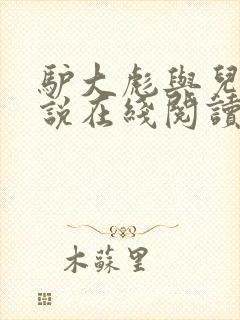 驴大彪與兒
說在綫閱讀
木蘇里